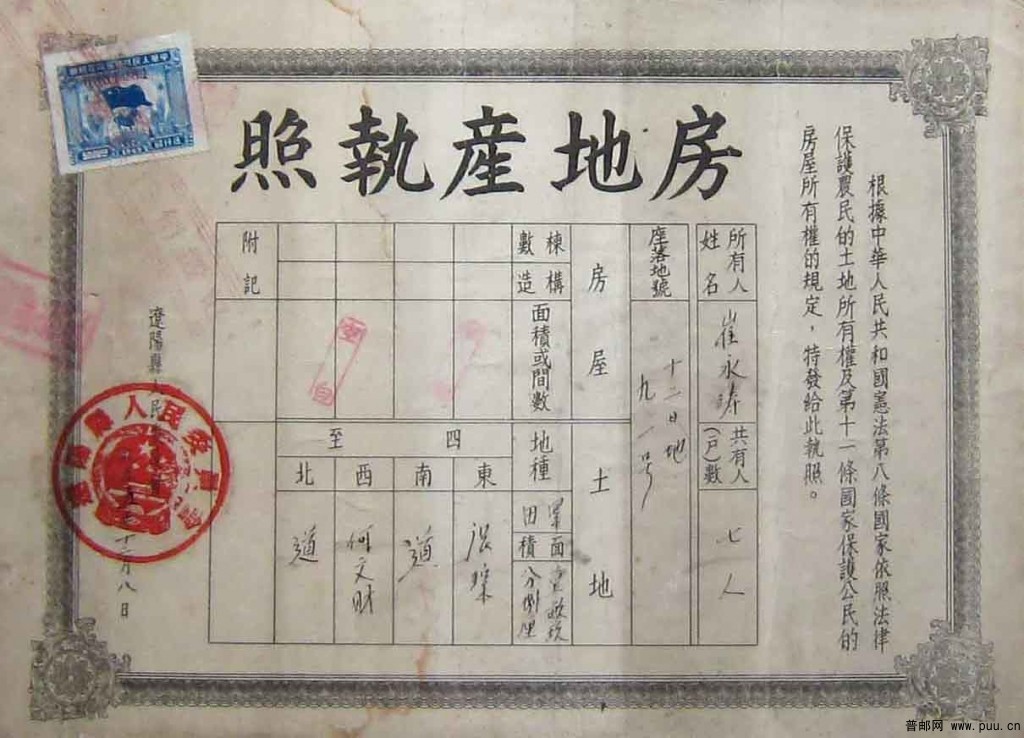 房地產執照
根據中華人民共和國憲法第八條國家依照法律
保護農民的土地所有權及第十一條國家保護公民的
房屋所有權的規定，特發給此執照。
所有人姓名
崔永濤
共有人(户)數
七人
座落地號
十二日地
九一号
房屋
棟數
構造
面積或間數
土地
地種
旱田
面積
四至
東
南
道
西
何文財
北
道
附記
遼陽縣人民
十二月八日
普邮网 www.puu.cn